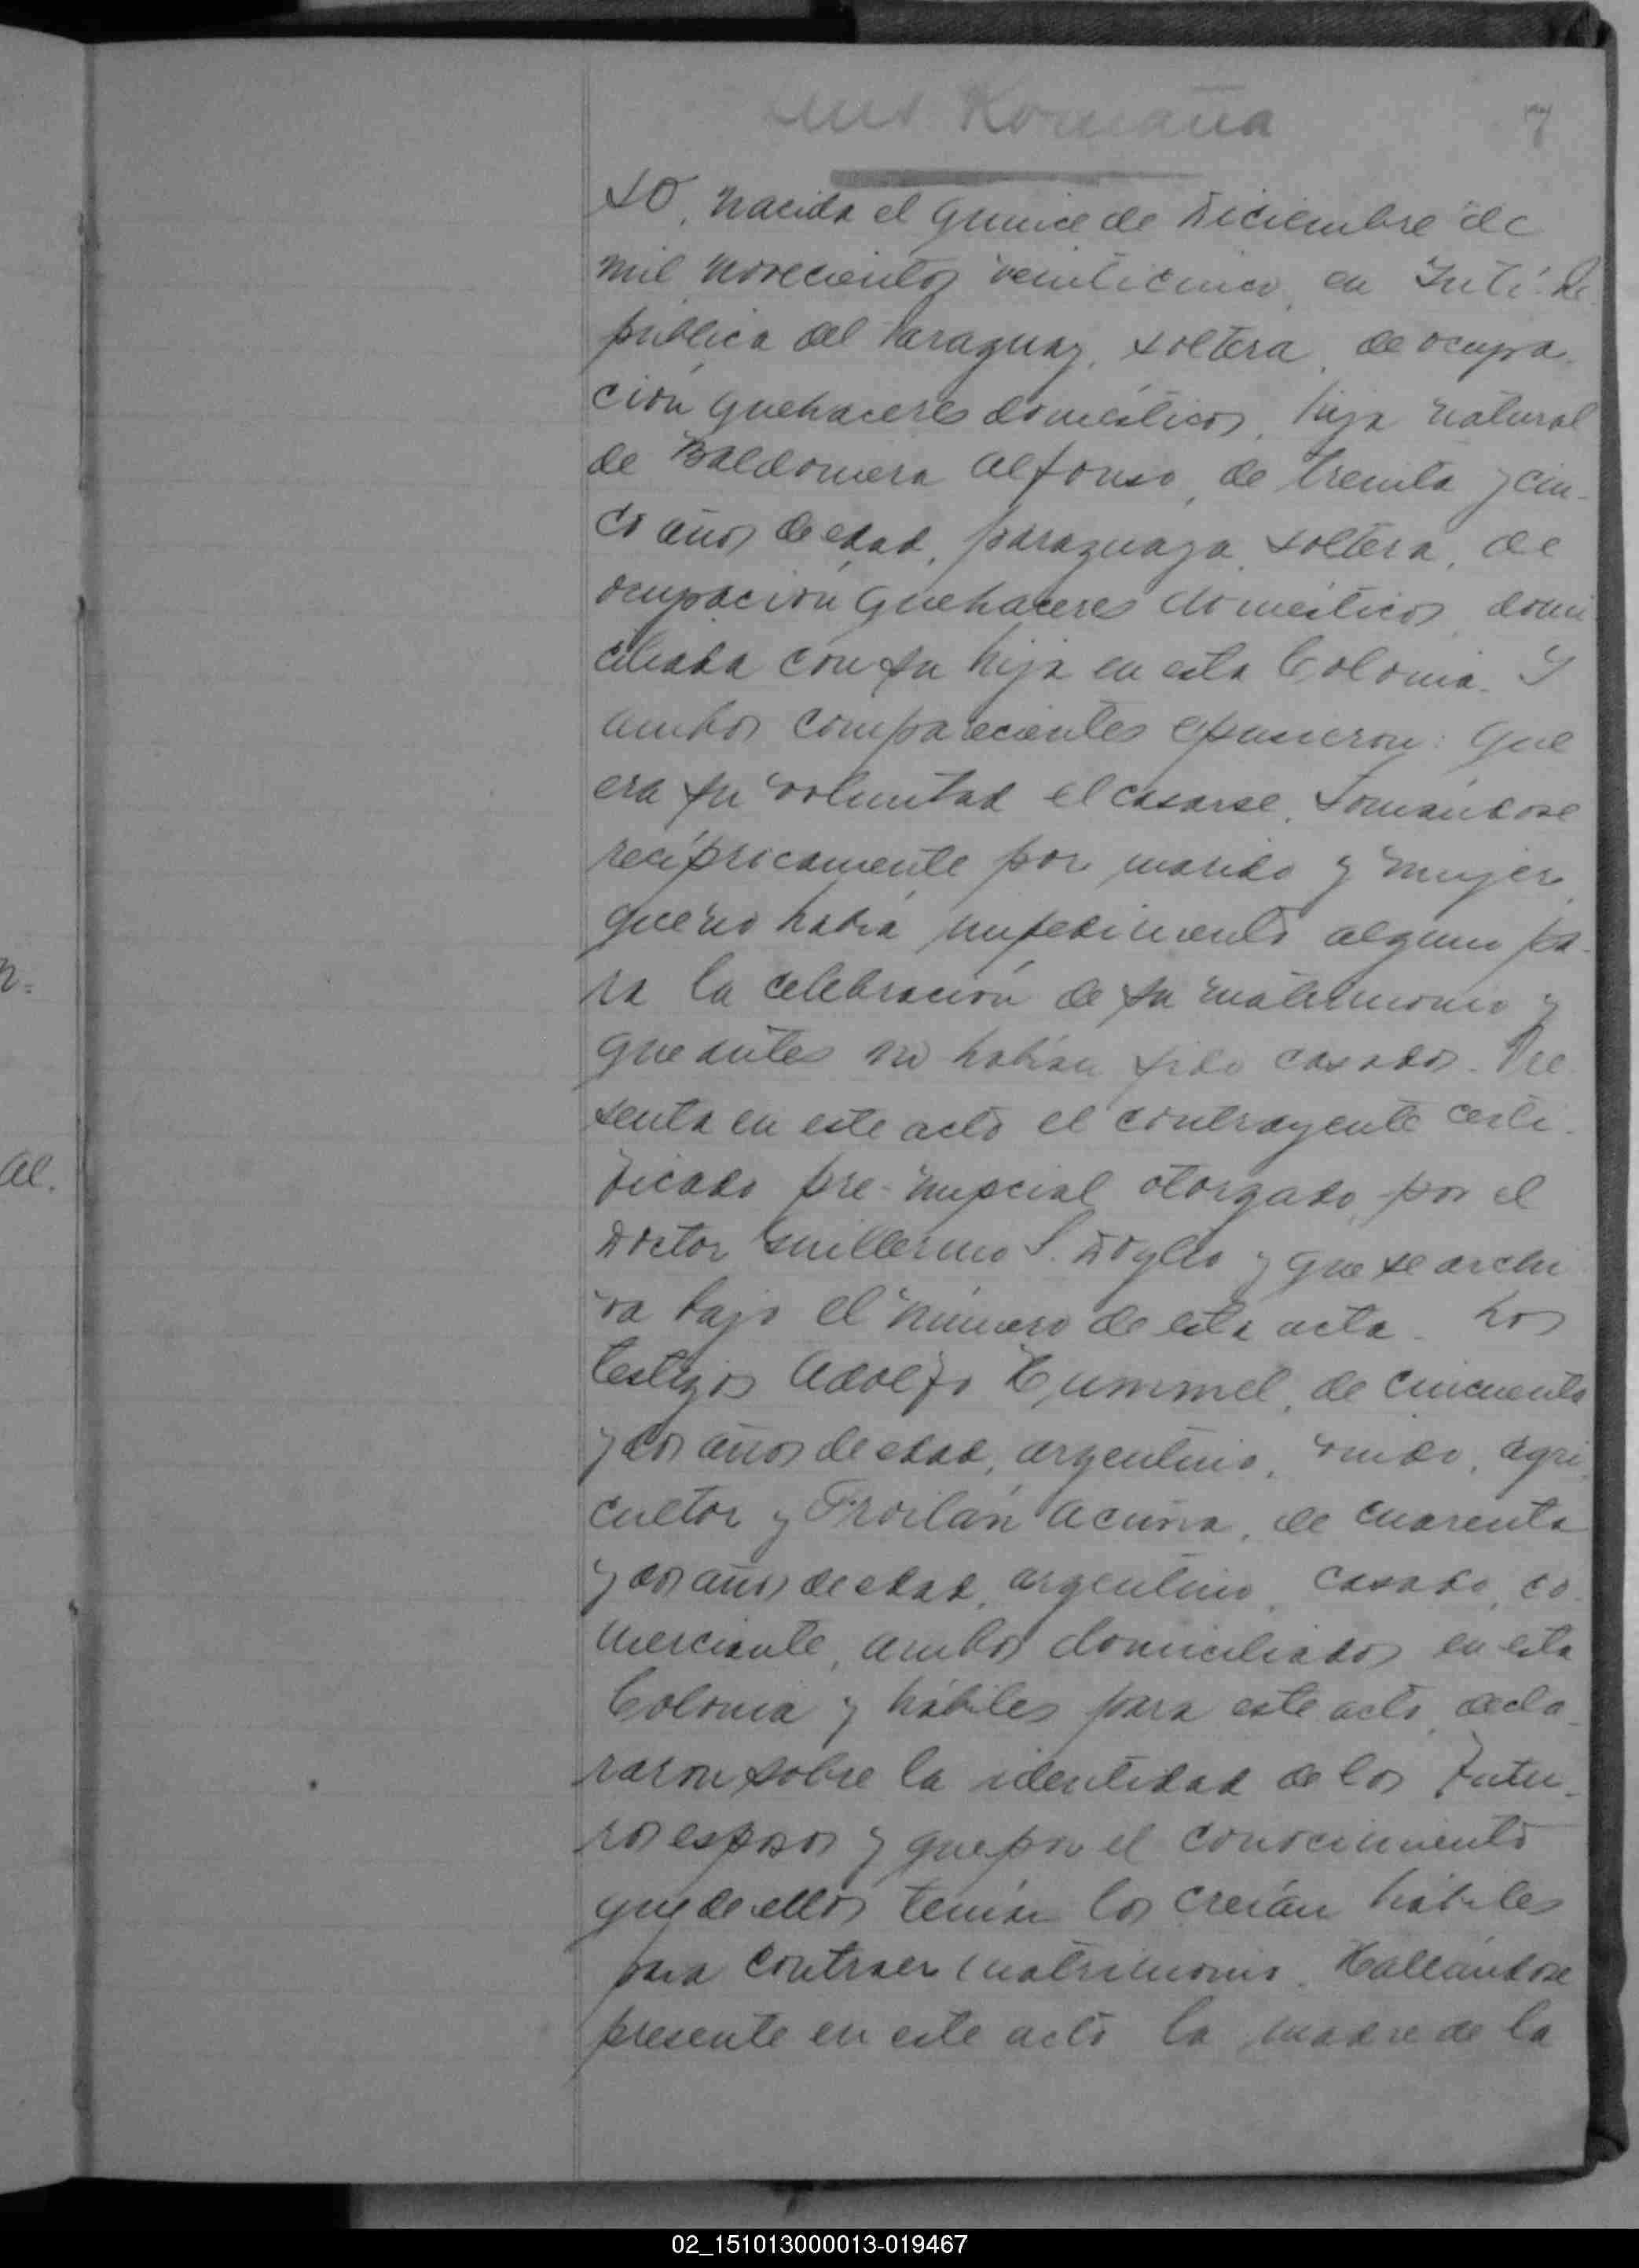 Luis Romaña
7
so, nacida el quince de Diciembre de
mil novecientos veinticinco, en Yuti. Re
pública del Paraguay, soltera, de ocupa-
ción quehaceres domésticos, hija natural
de Baldomera Alfonso, de treinta y cin-
co años de edad, paraguaya, soltera, de
ocupación quehaceres domésticos, domi
ciliada con su hija en esta Colonia. Y
ambos comparecientes expusieron: Que
era su voluntad el casarse, tomándose
recíprocamente por marido y mujer,
que no había impedimento alguno pa-
ra la celebración de su matrimonio y
que antes no habían sido casados. Pre
senta en este acto el contrayente certi-
ficado pre-nupcial otorgado por el
Doctor Guillermo S. Doyle y que se archi
va bajo el número de esta acta. Los
testigos Adolfo Hummel, de cincuenta
y dos años de edad, argentino, viudo, agri
cultor y Froilán Acuña, de cuarenta
y dos años de edad, argentino, casado, co-
merciante, ambos domiciliados en esta
Colonia y hábiles para este acto, decla-
raron sobre la identidad de los futu-
ros esposos y que por el conocimiento
que de ellos tenían los creían hábiles
para contraer matrimonio. Hallándose
presente en este acto la madre de la
n=
al.
02_151013000013-019467